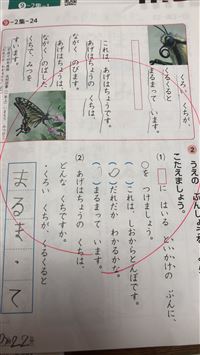 9-2集-1
9-2集-24
くろい くちが、
くるくると
まるまって います。
これは、あげはちょうです。
あげはちょうの くちは、
ながく のびます。
ながく のばした
くちで、みつを
すいます。
2
うえの ぶんしょうを
こたえましょう。
(1) に はいる といかけの ぶんに、
○を つけましょう。
( )これは、しおからとんぼです。
(○)だれだか わかるかな。
( )まるまって います。
(2) あげはちょうの くちは、
どんな くちですか。
くろい くちが、くるくると
まるまって